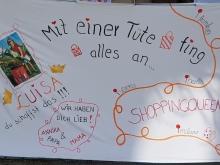 Mit einer Tüte fing
alles an...
LUISA
du schaffst das!!!
WIR HABEN
DICH LIEB!
PAPA & MAMA
SHOPPINGQUEEN